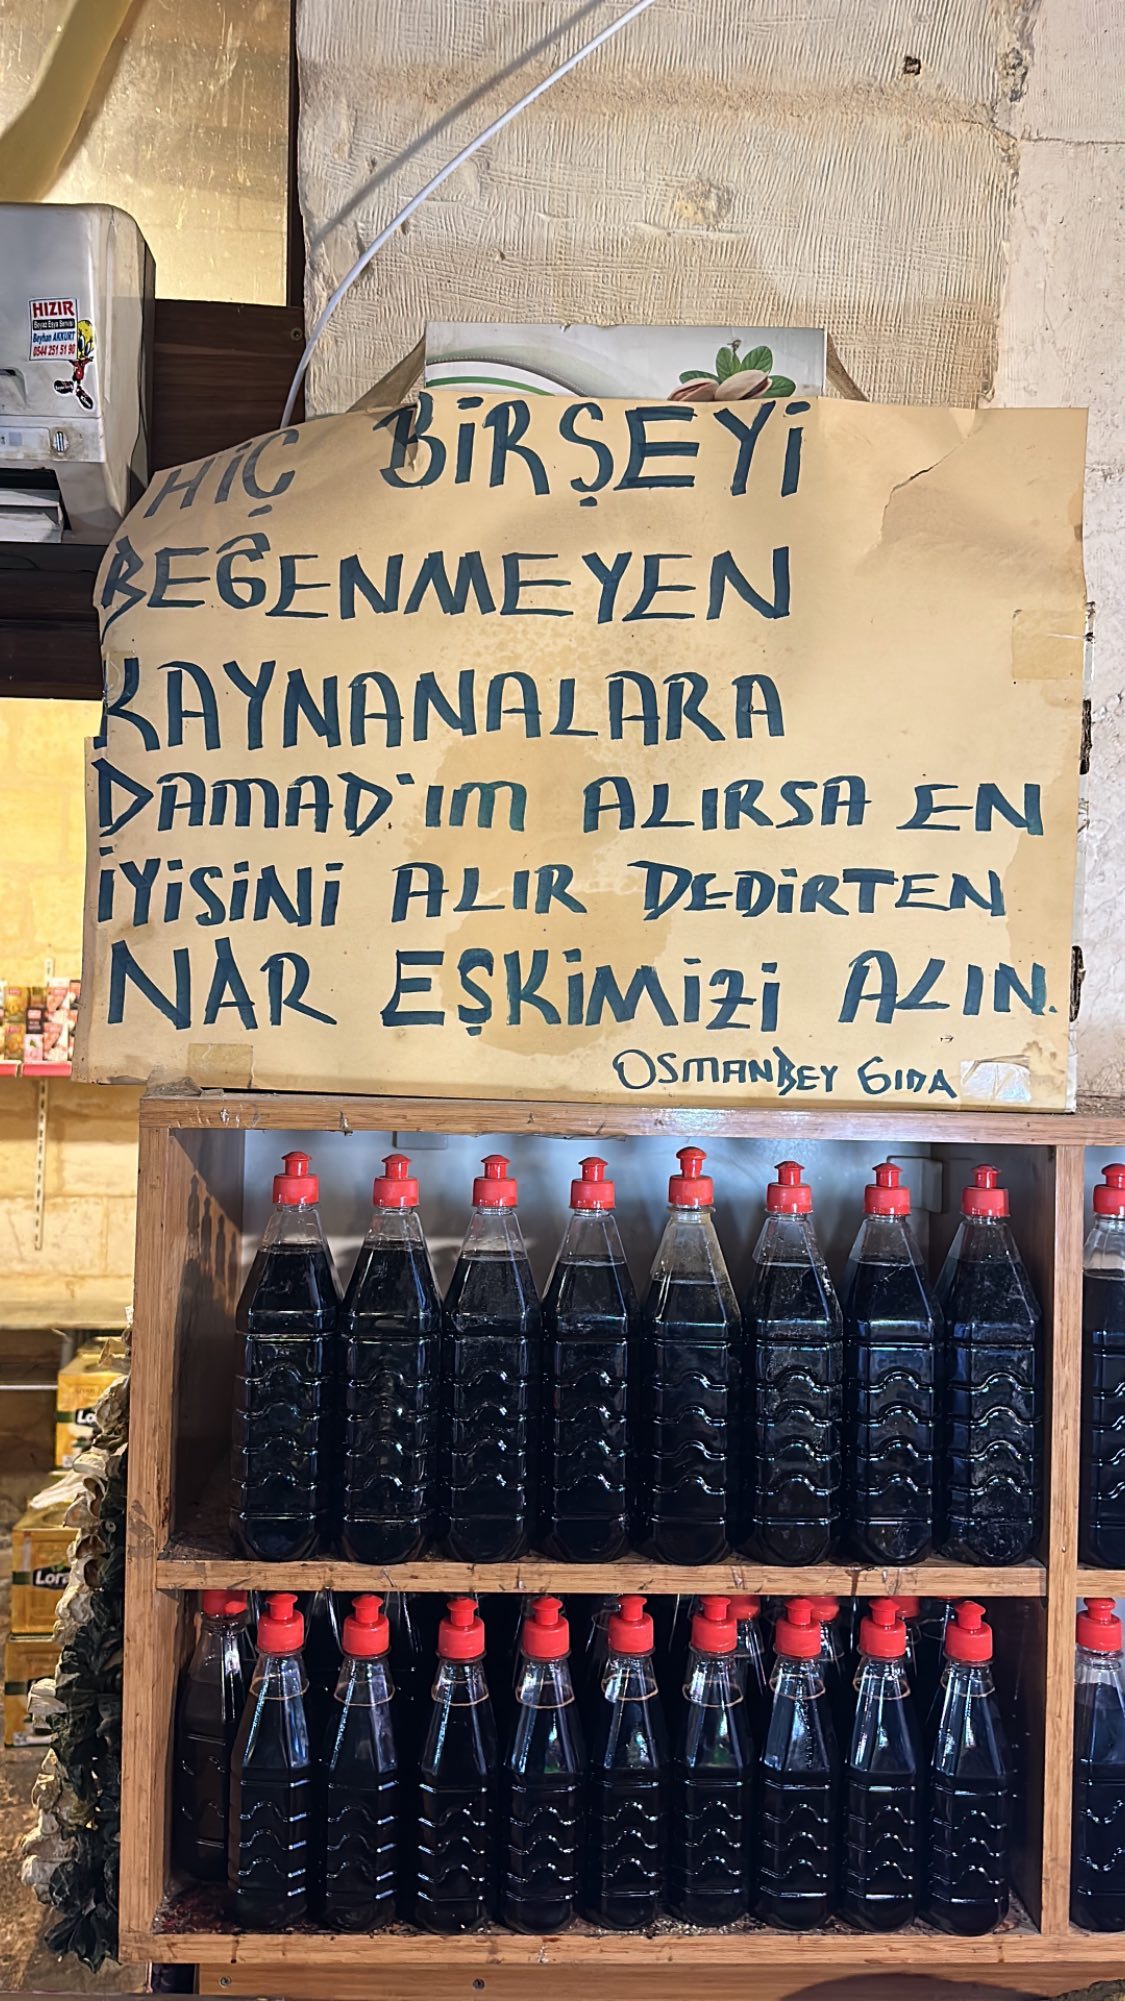 HIZIR
Beyaz Eşya Servisi
Beyhan AKKURT
0544 251 51 90
HİÇ BİRŞEYİ
BEĞENMEYEN
KAYNANALARA
DAMAD'IM ALIRSA EN
İYİSİNİ ALIR DEDİRTEN
NAR EŞKİMİZİ ALIN.
OSMANBEY GIDA